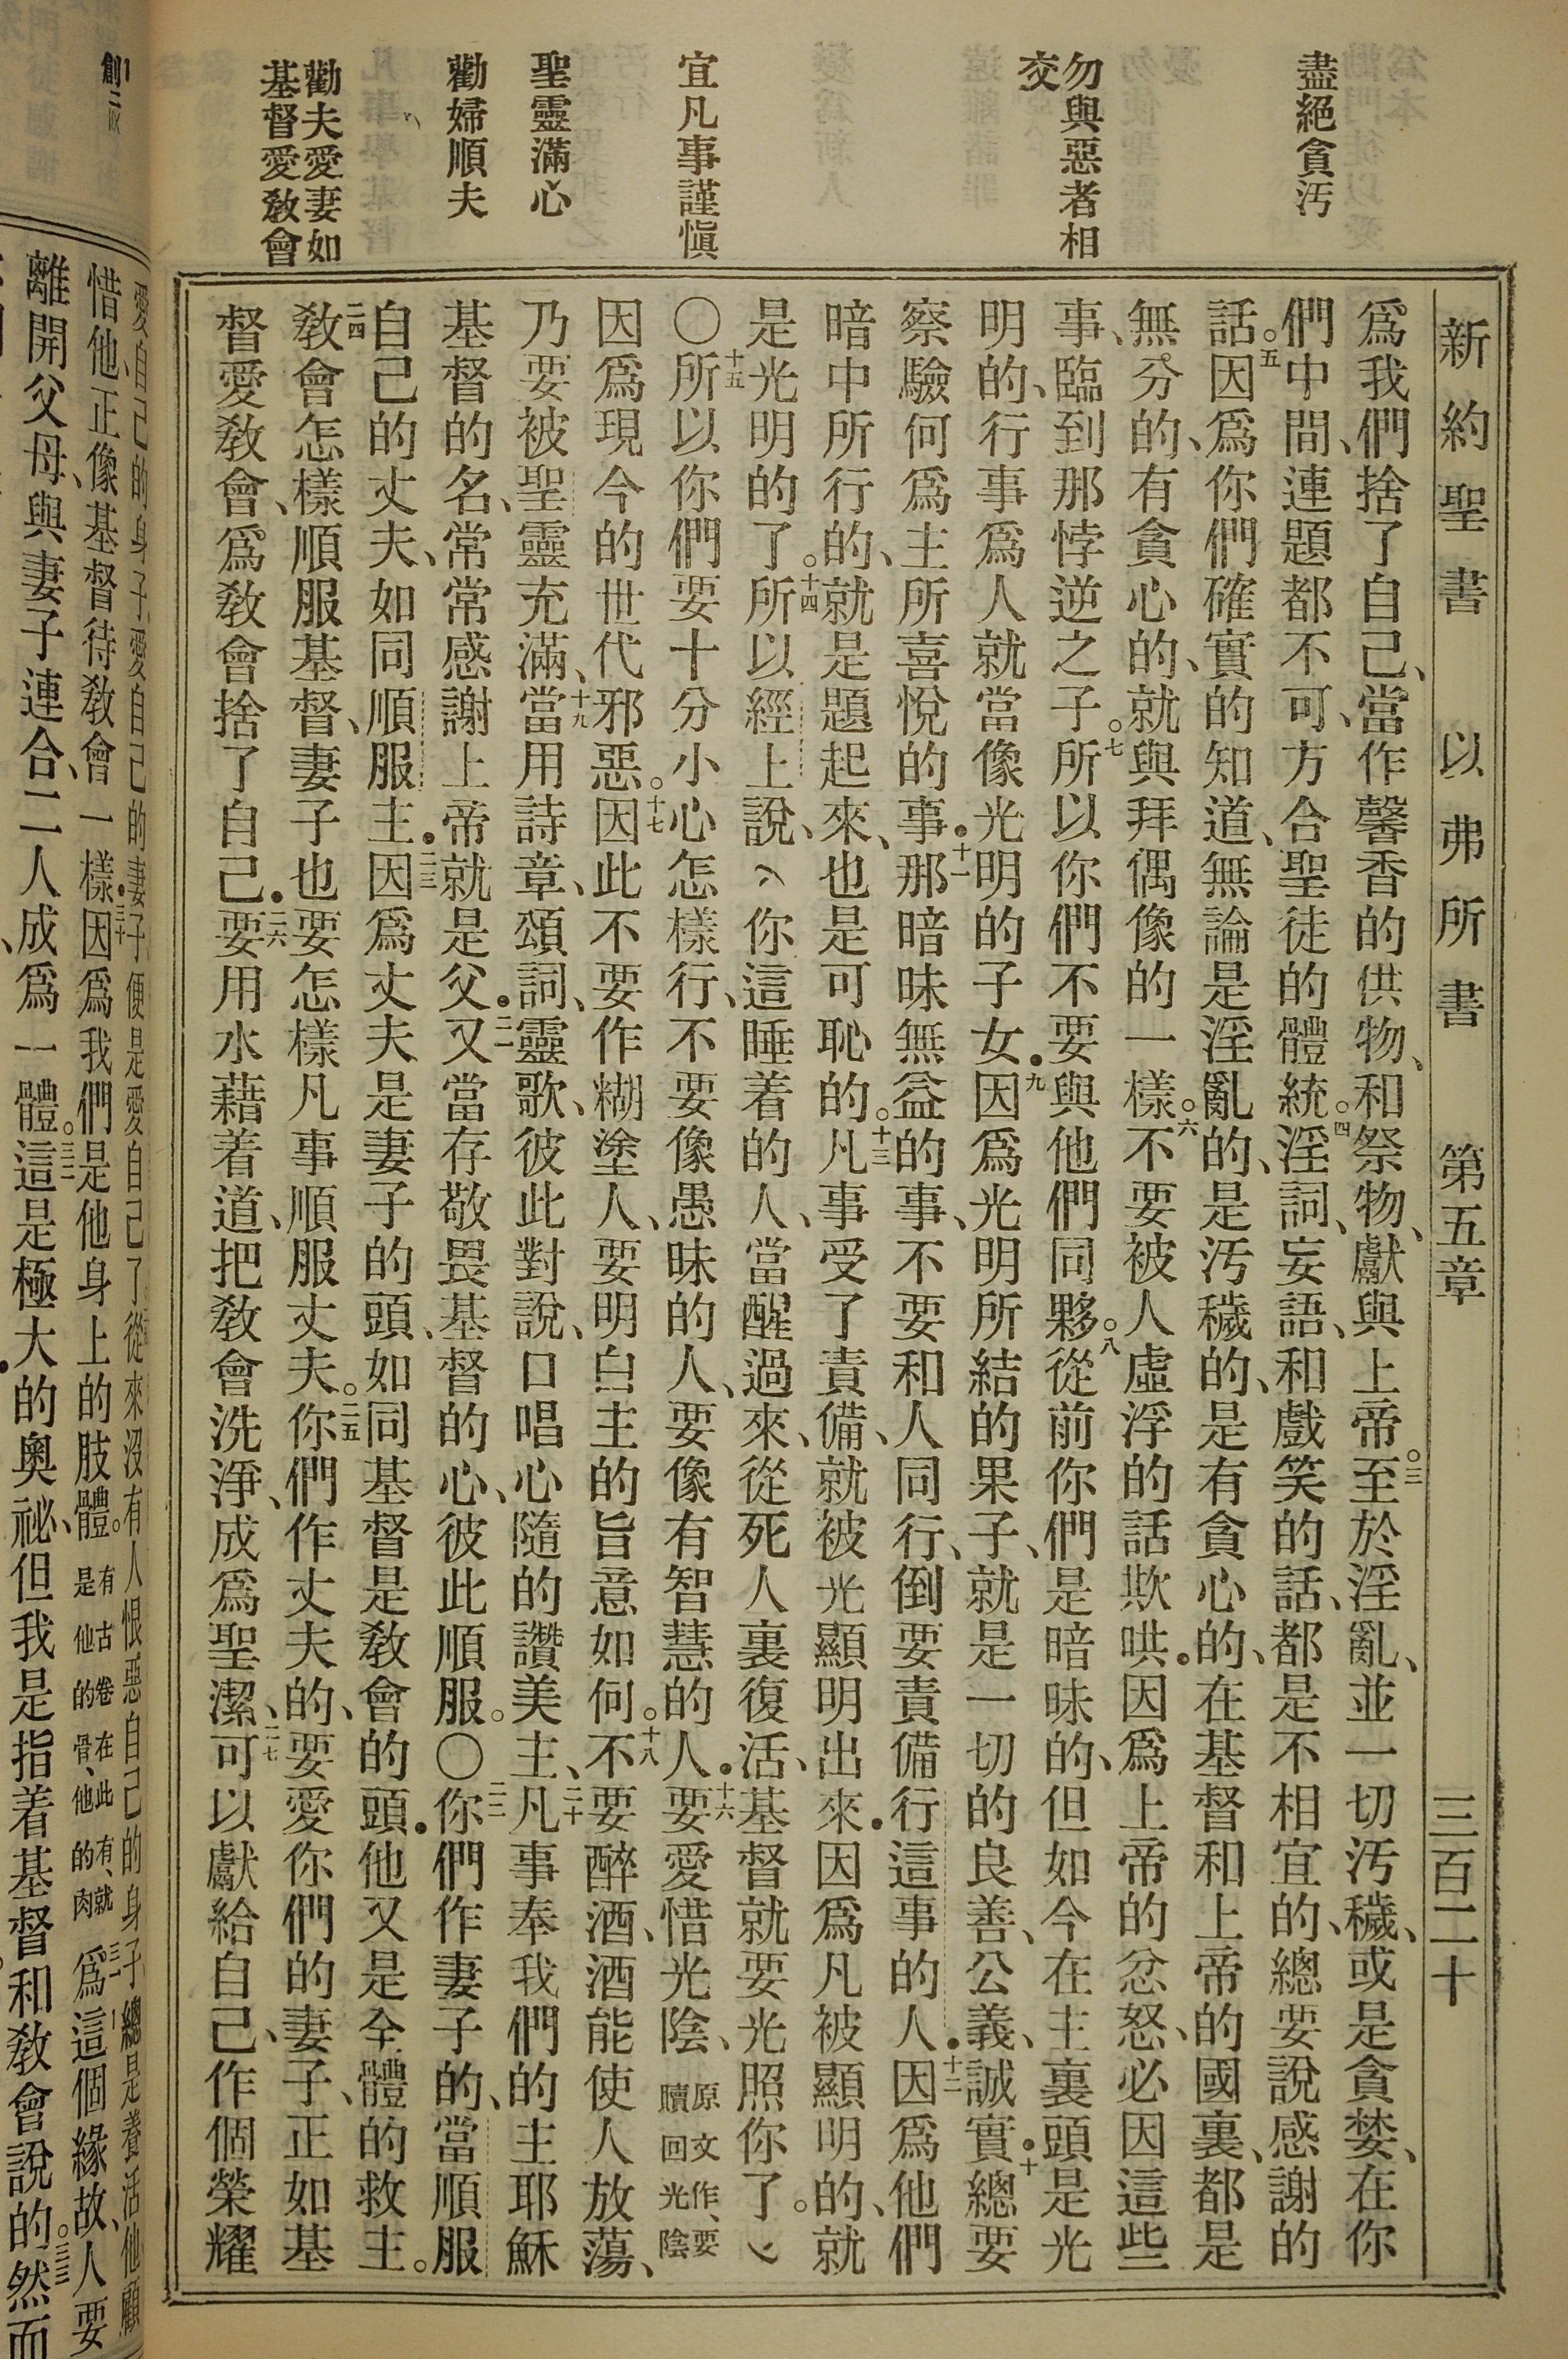 盡絕貪汚
勿與惡者相
交
宜凡事謹愼
聖靈滿心
勸婦順夫
勸夫愛妻如
基督愛敎會
新約聖書 以弗所書 第五章 三百二十
爲我們捨了自己、當作馨香的供物、和祭物、獻與上帝。三至於淫亂、並一切汚穢、或是貪婪、在你
們中間、連題都不可、方合聖徒的體統。四淫詞、妄語、和戲笑的話、都是不相宜的、總要說感謝的
話。五因爲你們確實的知道、無論是淫亂的、是汚穢的、是有貪心的、在基督和上帝的國裏、都是
無分的、有貪心的、就與拜偶像的一樣。六不要被人虛浮的話欺哄．因爲上帝的忿怒、必因這些
事、臨到那悖逆之子。七所以你們不要與他們同夥。八從前你們是暗昧的、但如今在主裏頭是光
明的、行事爲人就當像光明的子女．九因爲光明所結的果子、就是一切的良善、公義、誠實．十總要
察驗何爲主所喜悅的事．十一那暗昧無益的事、不要和人同行、倒要責備行這事的人．十二因爲他們
暗中所行的、就是題起來、也是可恥的。十三凡事受了責備、就被光顯明出來．因爲凡被顯明的、就
是光明的了。十四所以經上說、你這睡着的人、當醒過來、從死人裏復活、基督就要光照你了。
〇十五所以你們要十分小心怎樣行、不要像愚昧的人、要像有智慧的人．十六要愛惜光陰、原文作、要贖回光陰
因爲現今的世代邪惡。十七因此不要作糊塗人、要明白主的旨意如何。十八不要醉酒、酒能使人放蕩、
乃要被聖靈充滿、十九當用詩章、頌詞、靈歌、彼此對說、口唱心隨的讚美主、二十凡事奉我們的主耶穌
基督的名、常常感謝上帝就是父．二一又當存敬畏基督的心、彼此順服。〇二二你們作妻子的、當順服
自己的丈夫、如同順服主．二三因爲丈夫是妻子的頭、如同基督是敎會的頭．他又是全體的救主。
二四敎會怎樣順服基督、妻子也要怎樣凡事順服丈夫。二五你們作丈夫的、要愛你們的妻子、正如基
督愛敎會、爲敎會捨了自己．二六要用水藉着道、把敎會洗淨、成爲聖潔、二七可以獻給自己、作個榮耀
創二
愛自己的身子、愛自己的妻子、便是愛自己了從來沒有人恨惡自己的身子、總是養活他顧
惜他、正像基督待敎會一樣．三十因爲我們是他身上的肢體。有古卷在此有、就是他的骨、他的肉三一爲這個緣故、人要
離開父母、與妻子連合、二人成爲一體。三二這是極大的奧祕、但我是指着基督和敎會說的。三三然而